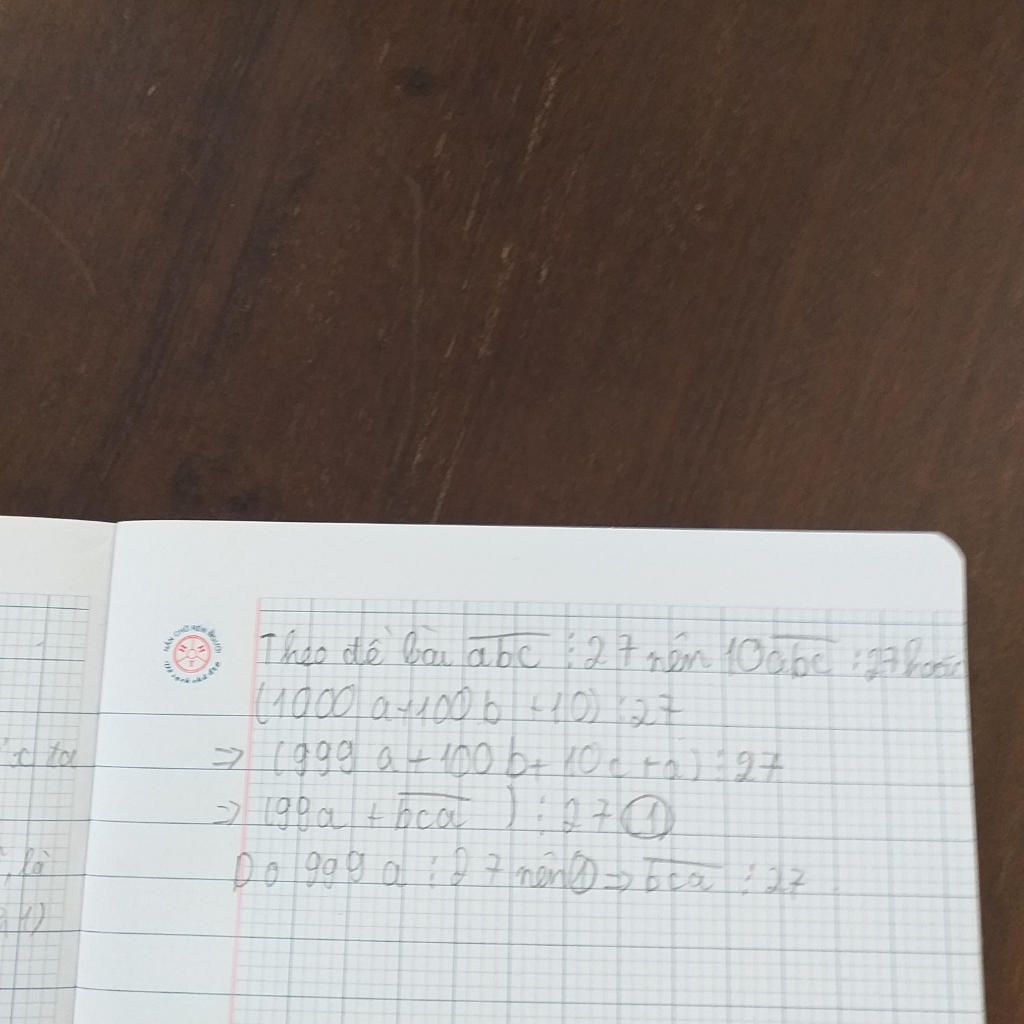 Theo đề bài abc ⋮ 27 nên 10abc ⋮ 27 hoặc
(1000 a+100 b +10) ⋮ 27
x ta
⇒ (999 a+100 b+ 10c+a) ⋮ 27
⇒ (99a + bca ) ⋮ 27 ①
là
Do 999 a ⋮ 27 nên ① ⇒ bca ⋮ 27